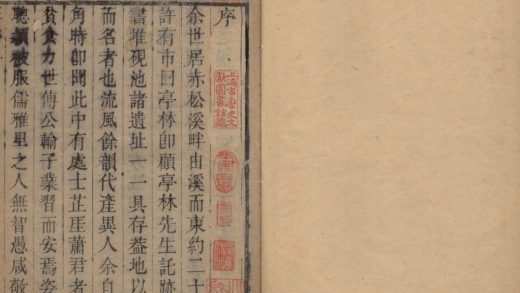 序
余世居赤松溪畔由溪而東約二十
許有市曰亭林卽顧亭林先生託跡
書堆硯池諸遺址一一具存葢地以
而名者也流風餘韻代產異人余自
角時卽聞此中有處士芷厓蕭君者
貧食力世傳公輸子業習而安焉姿
聰穎被服儒雅里之人無智愚咸敬
上海市歷史文獻圖書館藏